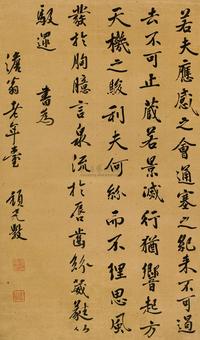 若夫應感之會通塞之紀来不可遏
去不可止藏若景滅行猶響起方
天機之駿利夫何紛而不理思風
發於胸臆言泉流於唇齒紛葳蕤以
馺遝 書為
濱翁老年臺